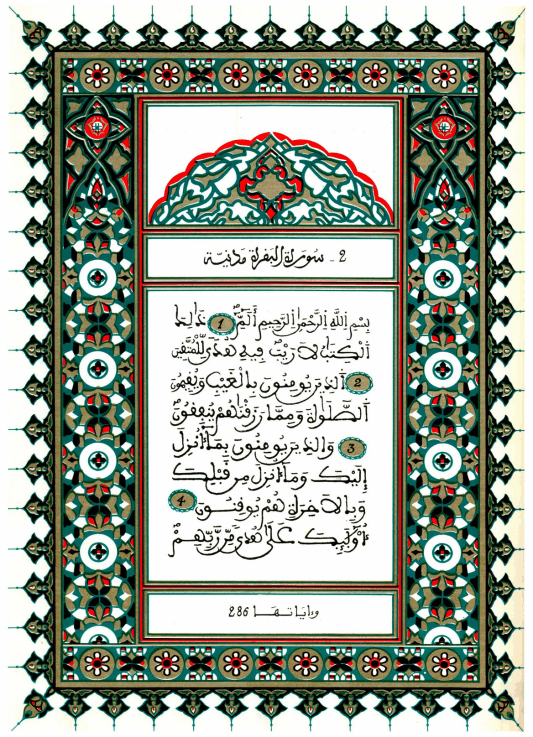 2 - سُورَة البَقرَة مَدَنيّة
بِسْمِ اِللَّهِ اِلرَّحْمَٰنِ اِلرَّحِيمِ أَلَٓمِّٓ 1 ذَٰلِكَ
اَلْكِتَٰبُ لَا رَيْبَ فِيهِ هُدىً لِّلْمُتَّقِينَ
2 اَلذِينَ يُومِنُونَ بِالْغَيْبِ وَيُقِيمُونَ
اَلصَّلَوٰةَ وَمِمَّا رَزَقْنَٰهُمْ يُنفِقُونَ
3 وَالذِينَ يُومِنُونَ بِمَا أُنزِلَ
إِلَيْكَ وَمَا أُنزِلَ مِن قَبْلِكَ
وَبِالَاخِرَةِ هُمْ يُوقِنُونَ 4
أُوْلَٰئِكَ عَلَىٰ هُدىً مِّن رَّبِّهِمْ
وءاياتها 286